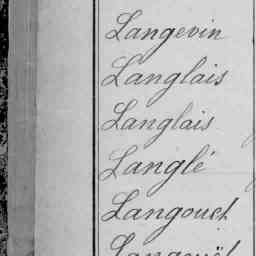 Langevin
Langlais
Langlais
Langlé
Langouet